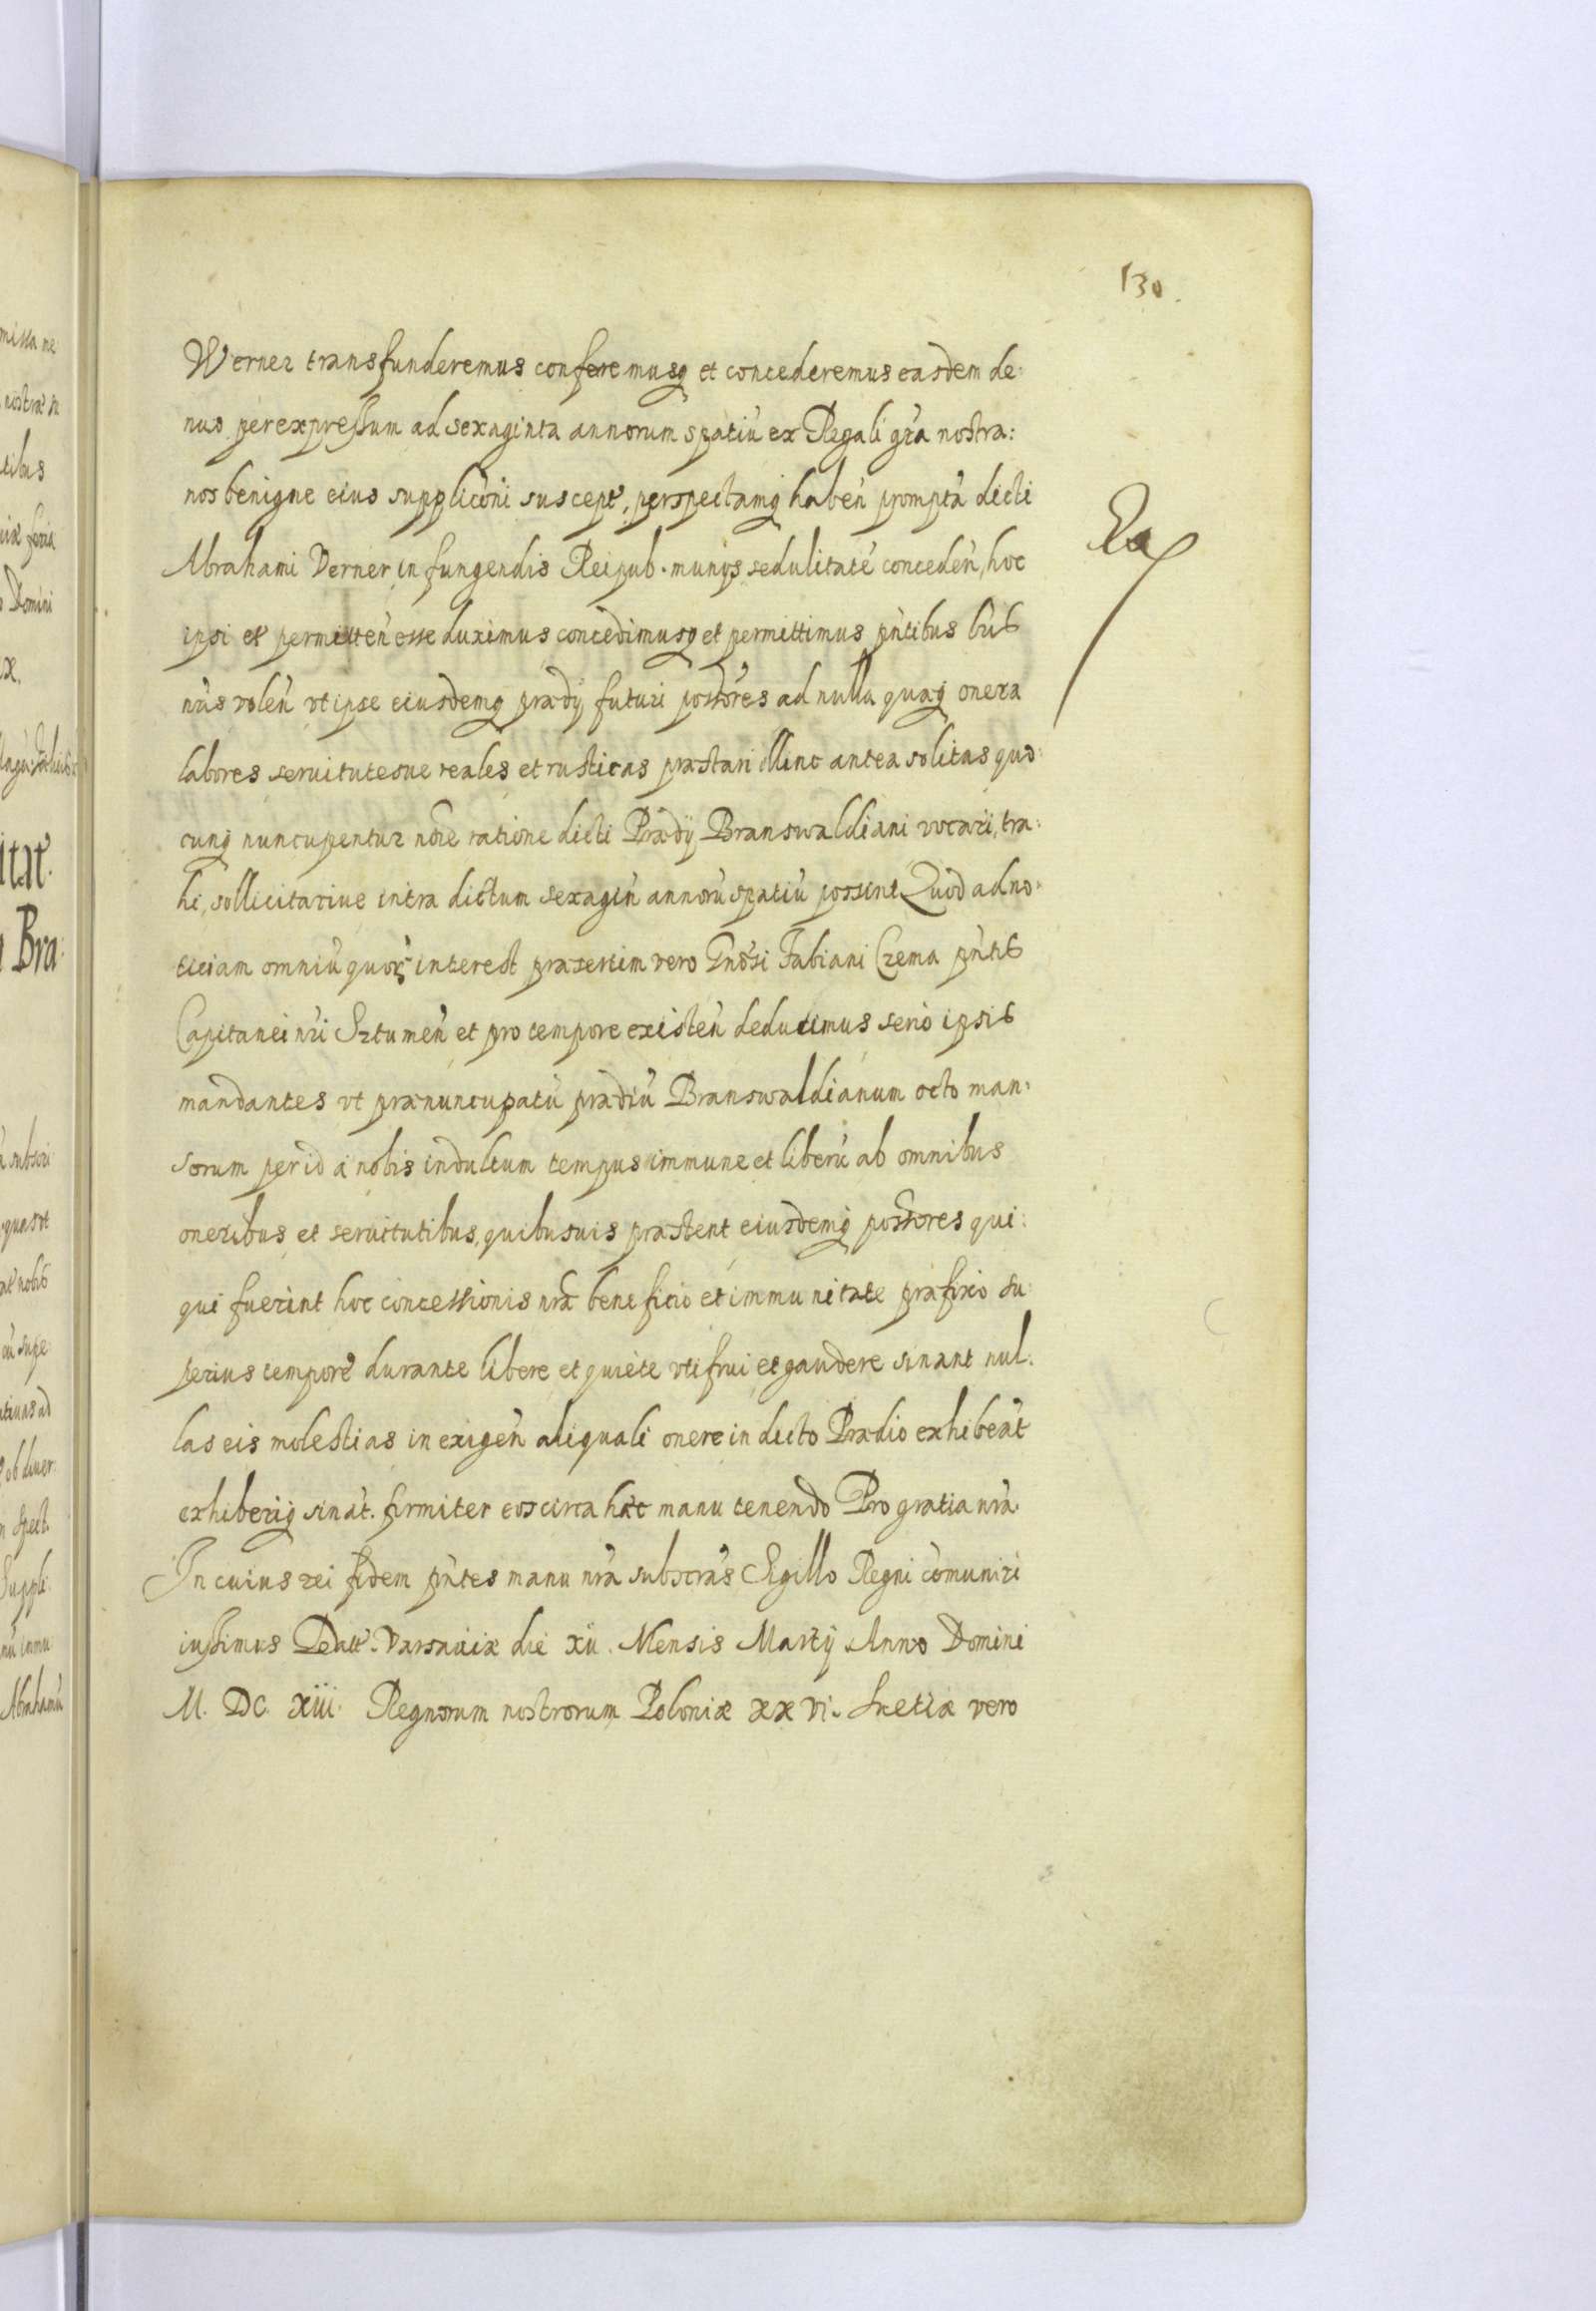 130.
Werner transfunderemus conferemusq et concederemus easdem de:
nuo per expressum ad sexaginta annorum spatiu ex Regali gra nostra:
nos benigne eius suppliconi suscept, perspectamq haben prompta dicti
Abrahami Verner in fungendis Reipub. munijs sedulitate conceden, hoc
ipsi et permitten esse duximus concedimusq et permittimus pntibus lris
nris volen vt ipse eiusdemq prædij futuri possores ad nulla quæq onera
labores seruitutesue reales et rusticas præstari illinc antea solitas quo:
cunq nuncupentur noie ratione dicti Prædij Branswaldiani vocari, tra:
hi, sollicitariue intra dictum sexagin annoru spatiu possint Quod ad no:
ticiam omniu quor interest præsertim vero Gnosi Fabiani Czema pntis
Capitanei nri Sztumen et pro tempore existen deducimus serio ipsis
mandantes vt prænuncupatu prædiu Branswaldianum octo man:
sorum per id a nobis indultum tempus immune et liberu ab omnibus
oneribus et seruitutibus, quibusuis præstent eiusdemq possores qui:
qui fuerint hoc concessionis nræ beneficio et immunitate præfixo su
perius tempore durante libere et quiete vti frui et gaudere sinant nul:
las eis molestias in exigen aliquali onere in dicto Prædio exhibeat
exhiberiq sinat. firmiter eos circa hæc manu tenendo Pro gratia nra.
In cuius rei fidem pntes manu nra subscras Sigillo Regni comuniri
iussimus Datt. Varsauiæ die xii. Mensis Martij Anno Domini
M. DC. xiii. Regnorum nostrorum Poloniæ xxvi. Suetiæ vero